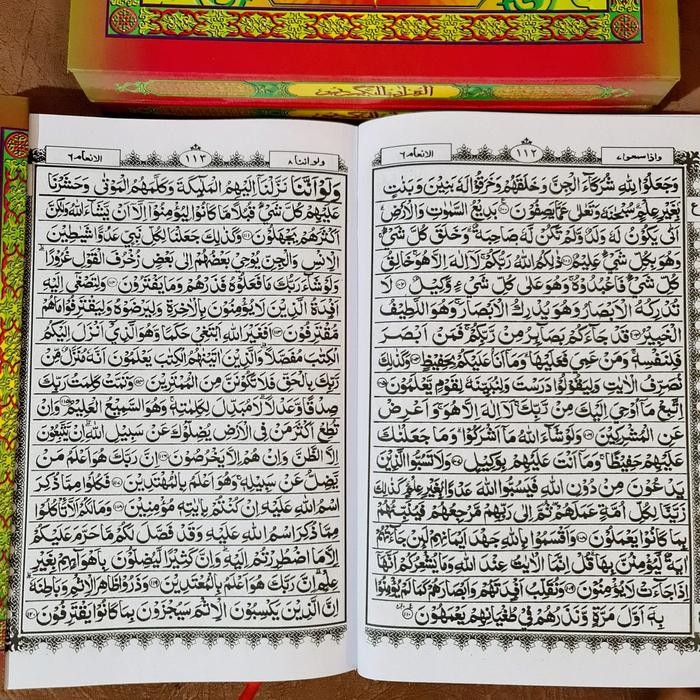 القرآن الكريم
واذا سمعوا ٧ ١١٢ الانعام ٦
وَجَعَلُوْا لِلّٰهِ شُرَكَآءَ الْجِنَّ وَخَلَقَهُمْ وَخَرَقُوْا لَهٗ بَنِيْنَ وَبَنٰتٍ
بِغَيْرِ عِلْمٍ سُبْحٰنَهٗ وَتَعٰلٰى عَمَّا يَصِفُوْنَ ۝١٠٠ بَدِيْعُ السَّمٰوٰتِ وَالْاَرْضِ
اَنّٰى يَكُوْنُ لَهٗ وَلَدٌ وَّلَمْ تَكُنْ لَّهٗ صَاحِبَةٌ وَخَلَقَ كُلَّ شَيْءٍ
وَهُوَ بِكُلِّ شَيْءٍ عَلِيْمٌ ۝١٠١ ذٰلِكُمُ اللّٰهُ رَبُّكُمْ لَآ اِلٰهَ اِلَّا هُوَ خَالِقُ
كُلِّ شَيْءٍ فَاعْبُدُوْهُ وَهُوَ عَلٰى كُلِّ شَيْءٍ وَّكِيْلٌ ۝١٠٢ لَا
تُدْرِكُهُ الْاَبْصَارُ وَهُوَ يُدْرِكُ الْاَبْصَارَ وَهُوَ اللَّطِيْفُ
الْخَبِيْرُ ۝١٠٣ قَدْ جَآءَكُمْ بَصَآئِرُ مِنْ رَّبِّكُمْ فَمَنْ اَبْصَرَ
فَلِنَفْسِهٖ وَمَنْ عَمِيَ فَعَلَيْهَا وَمَآ اَنَا عَلَيْكُمْ بِحَفِيْظٍ ۝١٠٤ وَكَذٰلِكَ
نُصَرِّفُ الْاٰيٰتِ وَلِيَقُوْلُوْا دَرَسْتَ وَلِنُبَيِّنَهٗ لِقَوْمٍ يَّعْلَمُوْنَ ۝١٠٥
اِتَّبِعْ مَآ اُوْحِيَ اِلَيْكَ مِنْ رَّبِّكَ لَآ اِلٰهَ اِلَّا هُوَ وَاَعْرِضْ
عَنِ الْمُشْرِكِيْنَ ۝١٠٦ وَلَوْ شَآءَ اللّٰهُ مَآ اَشْرَكُوْا وَمَا جَعَلْنٰكَ
عَلَيْهِمْ حَفِيْظًا وَمَآ اَنْتَ عَلَيْهِمْ بِوَكِيْلٍ ۝١٠٧ وَلَا تَسُبُّوا الَّذِيْنَ
يَدْعُوْنَ مِنْ دُوْنِ اللّٰهِ فَيَسُبُّوا اللّٰهَ عَدْوًا بِغَيْرِ عِلْمٍ كَذٰلِكَ
زَيَّنَّا لِكُلِّ اُمَّةٍ عَمَلَهُمْ ثُمَّ اِلٰى رَبِّهِمْ مَّرْجِعُهُمْ فَيُنَبِّئُهُمْ
بِمَا كَانُوْا يَعْمَلُوْنَ ۝١٠٨ وَاَقْسَمُوْا بِاللّٰهِ جَهْدَ اَيْمَانِهِمْ لَئِنْ جَآءَتْهُمْ
اٰيَةٌ لَّيُؤْمِنُنَّ بِهَا قُلْ اِنَّمَا الْاٰيٰتُ عِنْدَ اللّٰهِ وَمَا يُشْعِرُكُمْ اَنَّهَآ
اِذَا جَآءَتْ لَا يُؤْمِنُوْنَ ۝١٠٩ وَنُقَلِّبُ اَفْـِٕدَتَهُمْ وَاَبْصَارَهُمْ كَمَا لَمْ يُؤْمِنُوْا
بِهٖٓ اَوَّلَ مَرَّةٍ وَّنَذَرُهُمْ فِيْ طُغْيَانِهِمْ يَعْمَهُوْنَ ۝١١٠
ولو اننا ٨ ١١٣ الانعام ٦
وَلَوْ اَنَّنَا نَزَّلْنَآ اِلَيْهِمُ الْمَلٰٓئِكَةَ وَكَلَّمَهُمُ الْمَوْتٰى وَحَشَرْنَا
عَلَيْهِمْ كُلَّ شَيْءٍ قُبُلًا مَّا كَانُوْا لِيُؤْمِنُوْٓا اِلَّآ اَنْ يَّشَآءَ اللّٰهُ وَلٰكِنَّ
اَكْثَرَهُمْ يَجْهَلُوْنَ ۝١١١ وَكَذٰلِكَ جَعَلْنَا لِكُلِّ نَبِيٍّ عَدُوًّا شَيٰطِيْنَ
الْاِنْسِ وَالْجِنِّ يُوْحِيْ بَعْضُهُمْ اِلٰى بَعْضٍ زُخْرُفَ الْقَوْلِ غُرُوْرًا
وَلَوْ شَآءَ رَبُّكَ مَا فَعَلُوْهُ فَذَرْهُمْ وَمَا يَفْتَرُوْنَ ۝١١٢ وَلِتَصْغٰٓى اِلَيْهِ
اَفْـِٕدَةُ الَّذِيْنَ لَا يُؤْمِنُوْنَ بِالْاٰخِرَةِ وَلِيَرْضَوْهُ وَلِيَقْتَرِفُوْا مَا هُمْ
مُّقْتَرِفُوْنَ ۝١١٣ اَفَغَيْرَ اللّٰهِ اَبْتَغِيْ حَكَمًا وَّهُوَ الَّذِيْٓ اَنْزَلَ اِلَيْكُمُ
الْكِتٰبَ مُفَصَّلًا وَالَّذِيْنَ اٰتَيْنٰهُمُ الْكِتٰبَ يَعْلَمُوْنَ اَنَّهٗ مُنَزَّلٌ مِّنْ
رَّبِّكَ بِالْحَقِّ فَلَا تَكُوْنَنَّ مِنَ الْمُمْتَرِيْنَ ۝١١٤ وَتَمَّتْ كَلِمَتُ رَبِّكَ
صِدْقًا وَّعَدْلًا لَا مُبَدِّلَ لِكَلِمٰتِهٖ وَهُوَ السَّمِيْعُ الْعَلِيْمُ ۝١١٥ وَاِنْ
تُطِعْ اَكْثَرَ مَنْ فِى الْاَرْضِ يُضِلُّوْكَ عَنْ سَبِيْلِ اللّٰهِ اِنْ يَّتَّبِعُوْنَ
اِلَّا الظَّنَّ وَاِنْ هُمْ اِلَّا يَخْرُصُوْنَ ۝١١٦ اِنَّ رَبَّكَ هُوَ اَعْلَمُ مَنْ
يَّضِلُّ عَنْ سَبِيْلِهٖ وَهُوَ اَعْلَمُ بِالْمُهْتَدِيْنَ ۝١١٧ فَكُلُوْا مِمَّا ذُكِرَ
اسْمُ اللّٰهِ عَلَيْهِ اِنْ كُنْتُمْ بِاٰيٰتِهٖ مُؤْمِنِيْنَ ۝١١٨ وَمَا لَكُمْ اَلَّا تَأْكُلُوْا
مِمَّا ذُكِرَ اسْمُ اللّٰهِ عَلَيْهِ وَقَدْ فَصَّلَ لَكُمْ مَّا حَرَّمَ عَلَيْكُمْ
اِلَّا مَا اضْطُرِرْتُمْ اِلَيْهِ وَاِنَّ كَثِيْرًا لَّيُضِلُّوْنَ بِاَهْوَآئِهِمْ بِغَيْرِ
عِلْمٍ اِنَّ رَبَّكَ هُوَ اَعْلَمُ بِالْمُعْتَدِيْنَ ۝١١٩ وَذَرُوْا ظَاهِرَ الْاِثْمِ وَبَاطِنَهٗ
اِنَّ الَّذِيْنَ يَكْسِبُوْنَ الْاِثْمَ سَيُجْزَوْنَ بِمَا كَانُوْا يَقْتَرِفُوْنَ ۝١٢٠